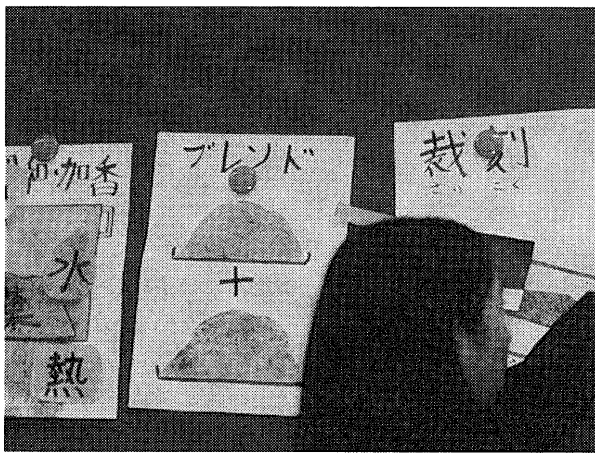 加香
水
熱
ブレンド
+
裁刻
さいこく